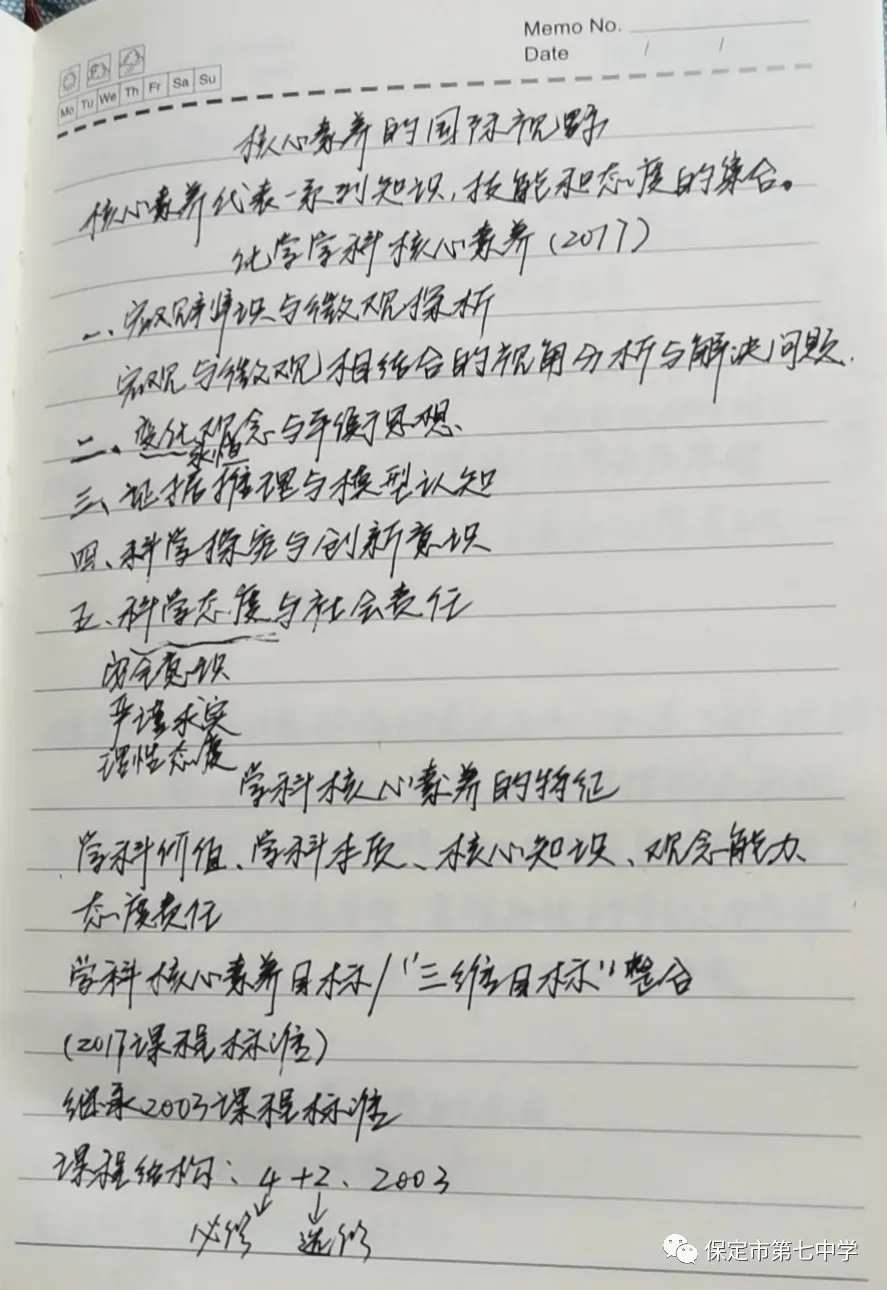 Memo No.
Date / /
Mo Tu We Th Fr Sa Su
核心素养的国际视野
核心素养代表一系列知识,技能和态度的集合。
化学学科核心素养(2017)
一、宏观辨识与微观探析
宏观与微观相结合的视角分析与解决问题.
二、变化观念与平衡思想
三、证据推理与模型认知
四、科学探究与创新意识
五、科学态度与社会责任
安全意识
严谨求实
理性态度
学科核心素养的特征
学科价值、学科本质、核心知识、观念能力、
态度责任
学科核心素养目标/"三维目标"整合
(2017课程标准)
继承2003课程标准
课程结构:4+2、2003
必修 选修
保定市第七中学